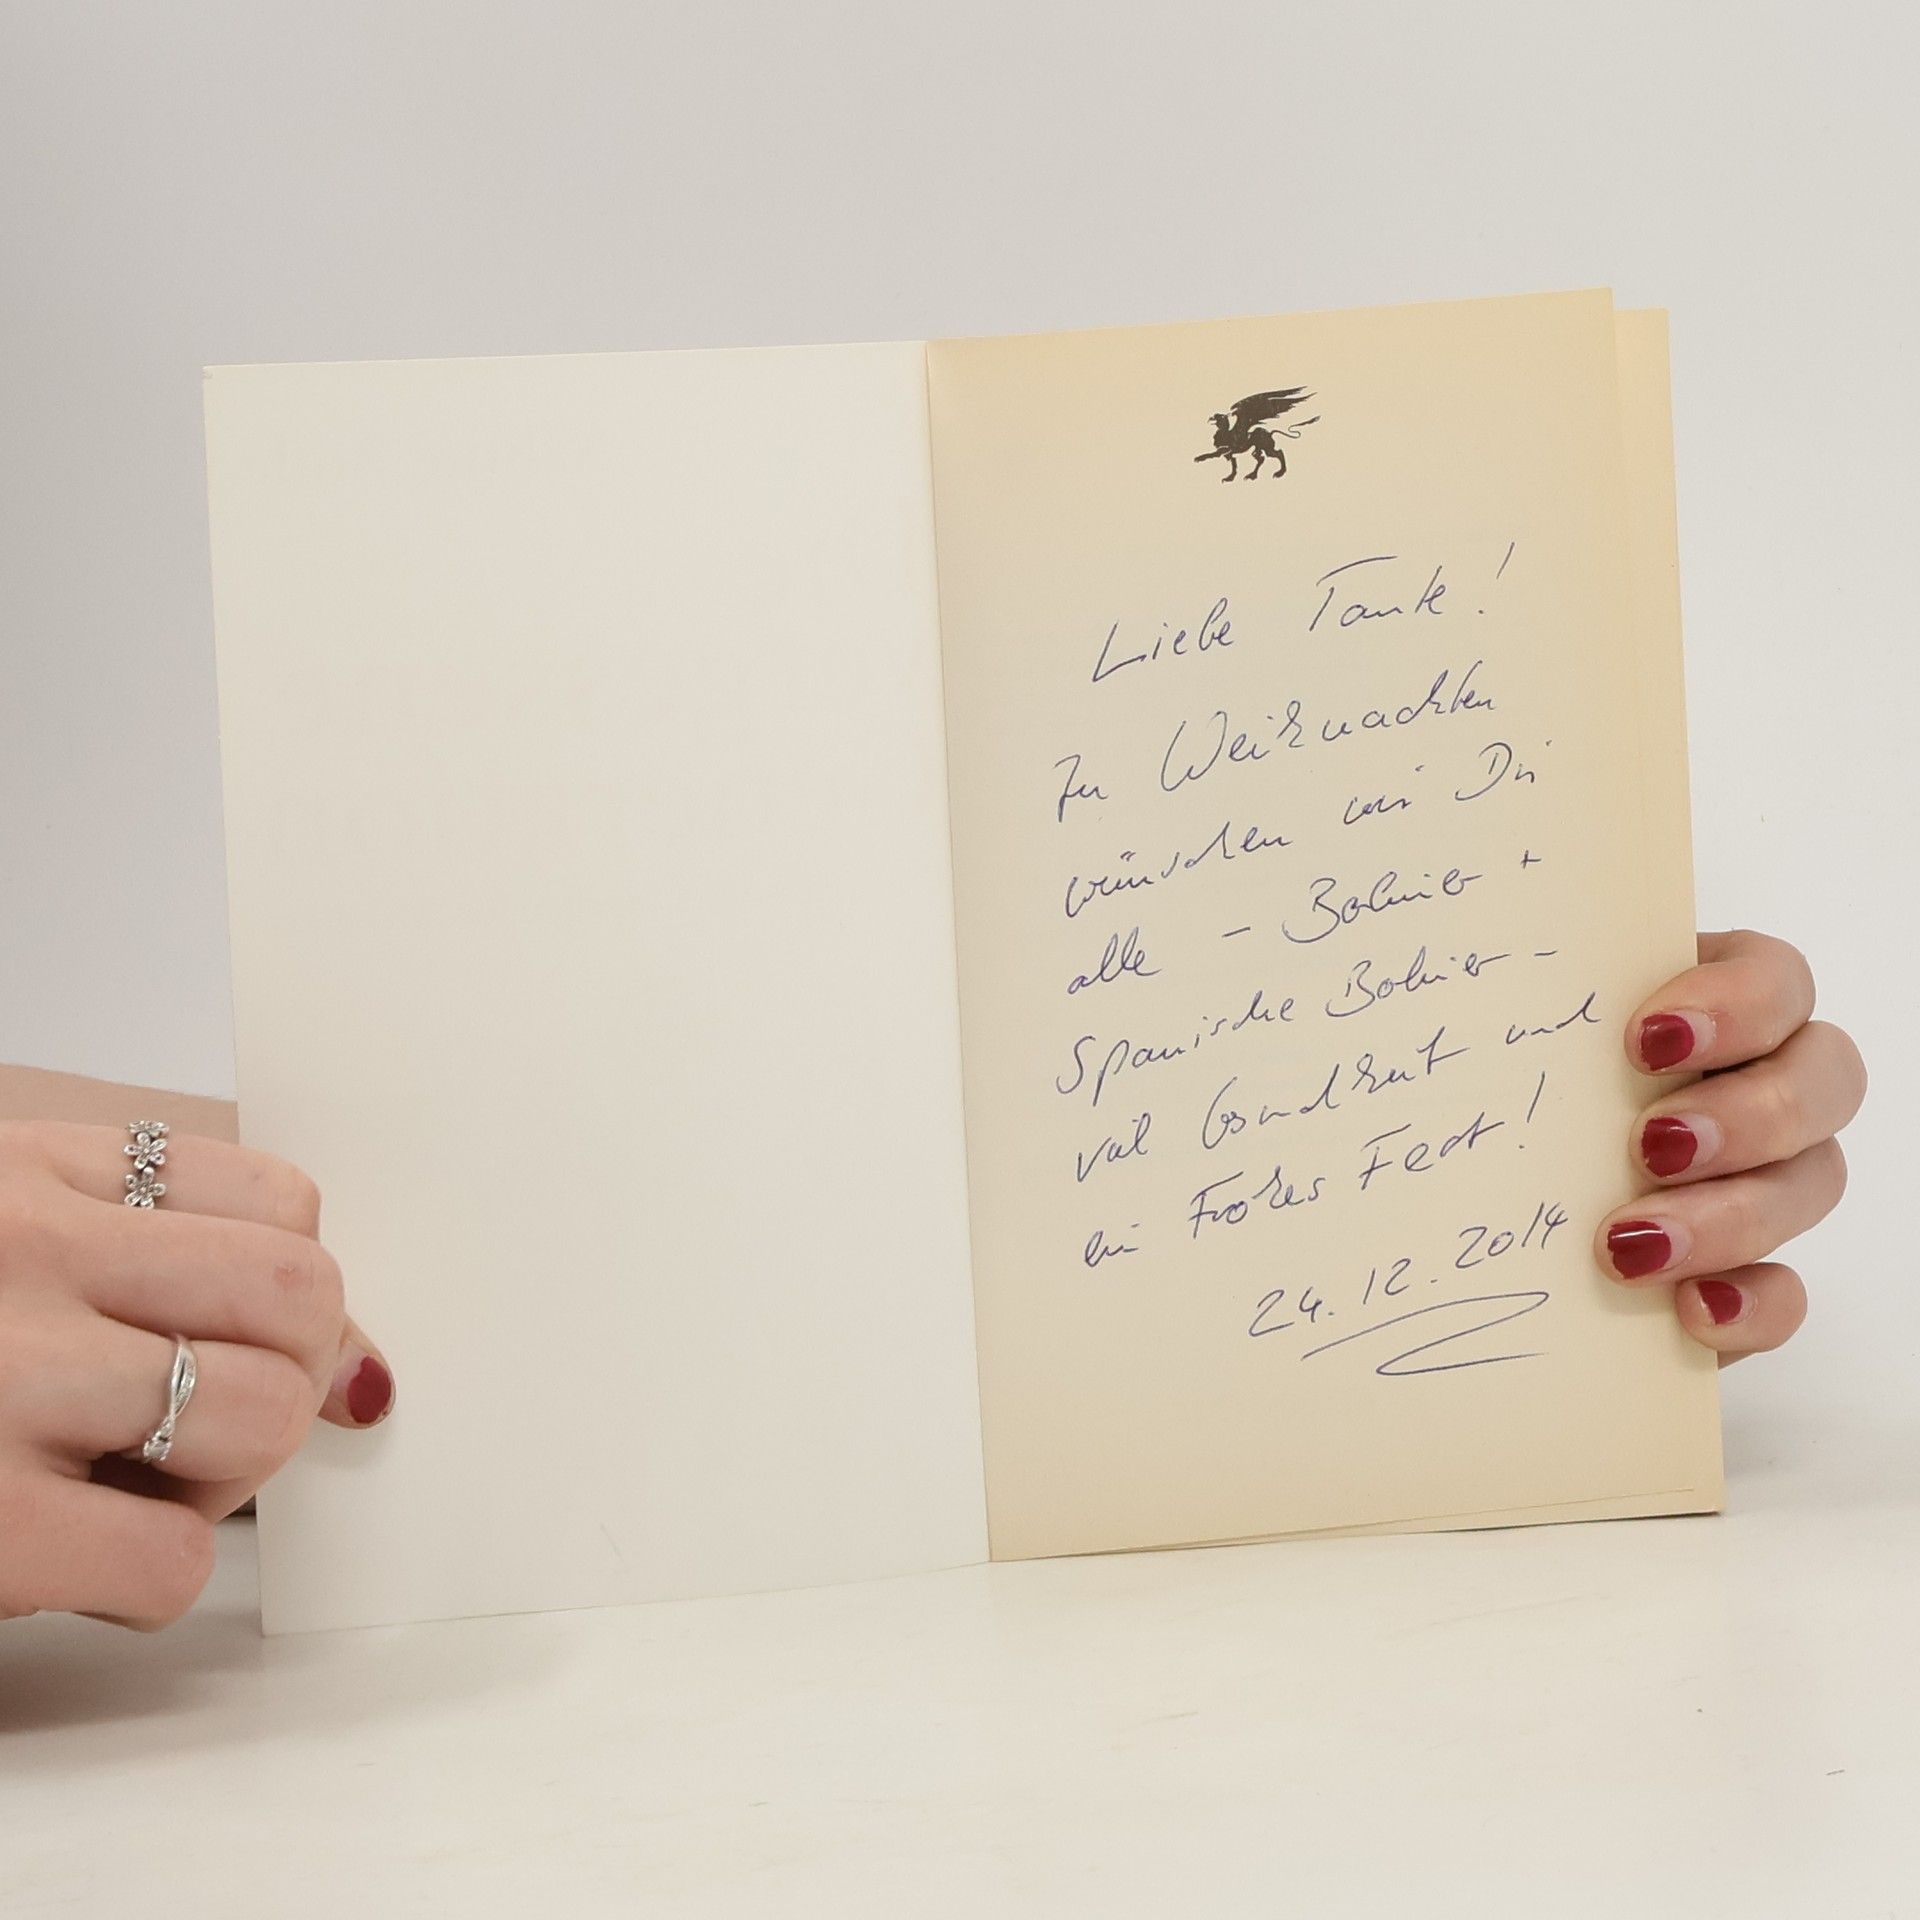 Liebe Tante!
Zu Weihnachten
wünschen wir Dir
alle - +
Spanische -
viel Gesundheit und
ein Frohes Fest!
24.12.2014